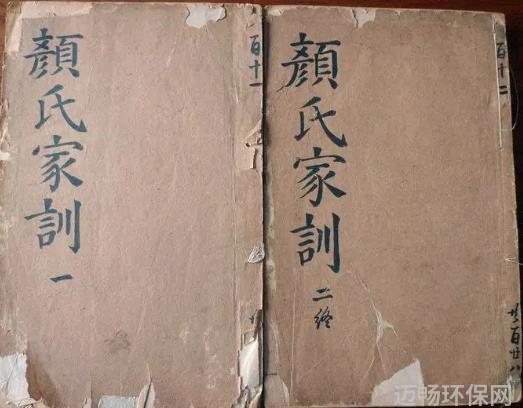 顏氏家訓
一
百十一
顏氏家訓
二終
百十二
廿八
迈畅环保网